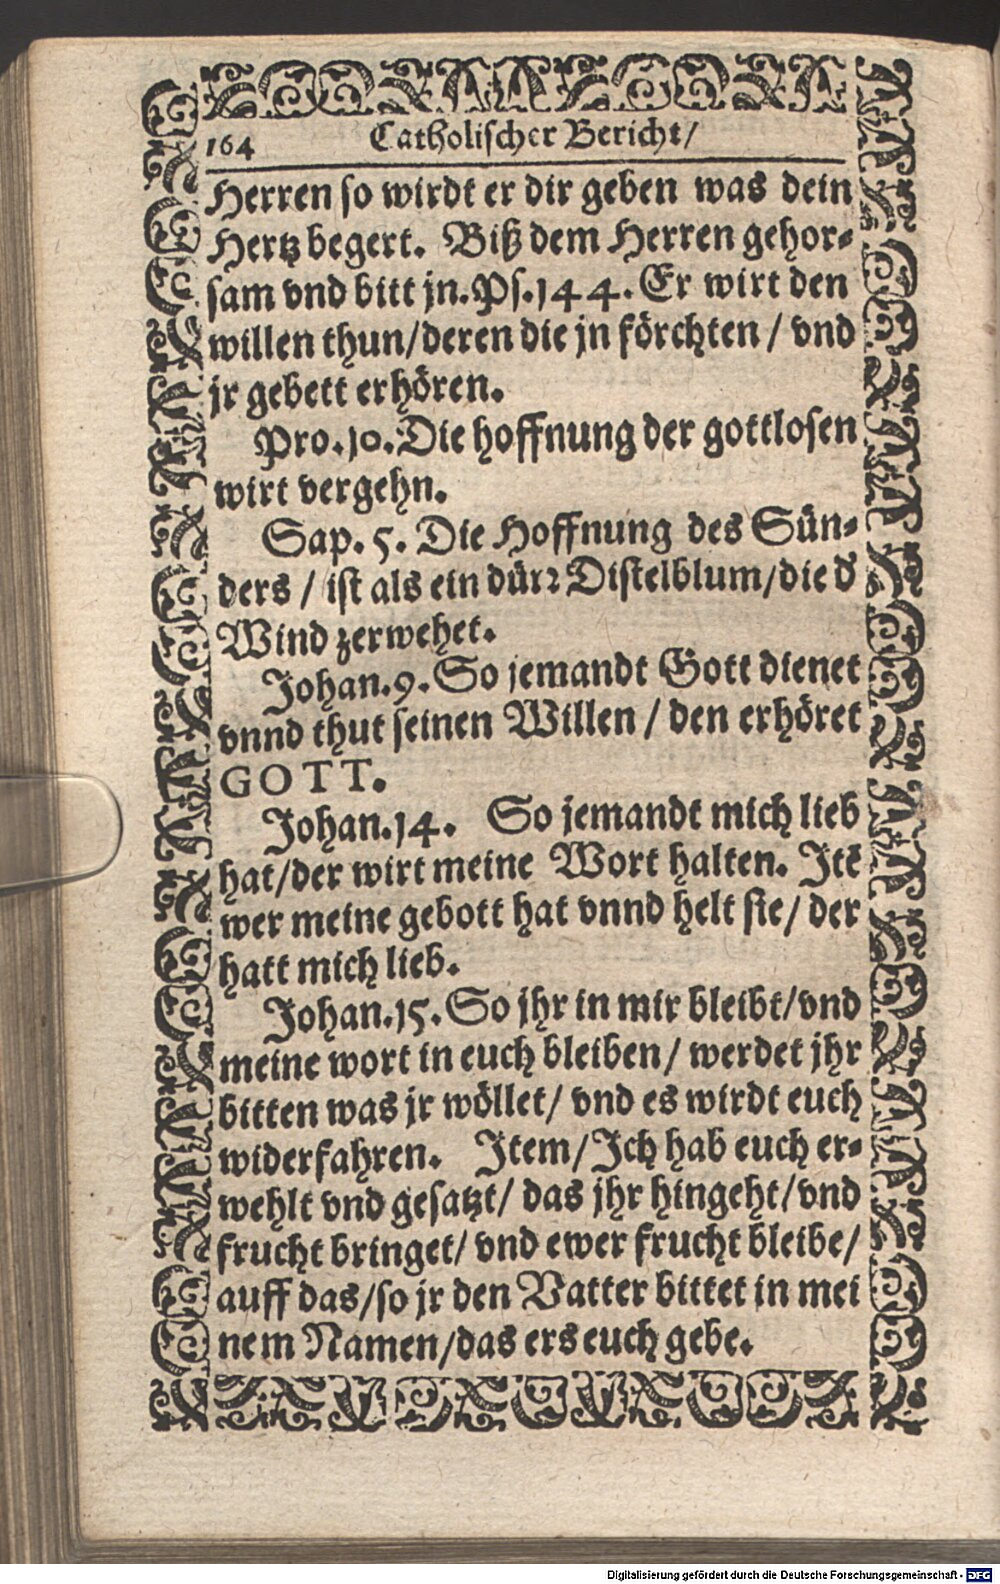 164 Catholischer Bericht/
Herren so wirdt er dir geben was dein
Hertz begert. Biß dem Herren gehor-
sam vnd bitt jn. Ps. 144. Er wirt den
willen thun/deren die jn förchten / vnd
jr gebett erhören.
Pro. 10. Die hoffnung der gottlosen
wirt vergehn.
Sap. 5. Die Hoffnung des Sün-
ders / ist als ein dürr Distelblum/die d̕
Wind zerwehet.
Johan. 9. So jemandt Gott dienet
vnnd thut seinen Willen / den erhöret
GOTT.
Johan. 14. So jemandt mich lieb
hat/der wirt meine Wort halten. Itē
wer meine gebott hat vnnd helt sie/ der
hatt mich lieb.
Johan. 15. So jhr in mir bleibt/vnd
meine wort in euch bleiben/ werdet jhr
bitten was jr wöllet/ vnd es wirdt euch
widerfahren. Item/Ich hab euch er-
wehlt vnd gesatzt/ das jhr hingeht/vnd
frucht bringet/ vnd ewer frucht bleibe/
auff das/so jr den Vatter bittet in mei
nem Namen/das ers euch gebe.
Digitalisierung gefördert durch die Deutsche Forschungsgemeinschaft - DFG